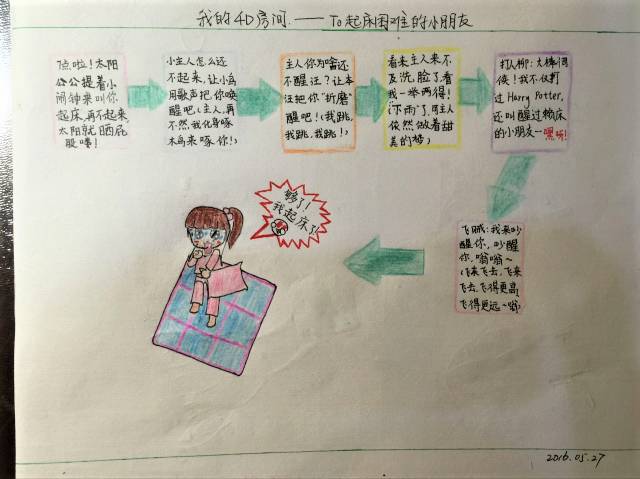 我的4D房间.——To起床困难的小朋友
7点啦!太阳
公公提着小
闹钟来叫你
起床,再不起来,
太阳就晒屁
股啰!
小主人怎么还
不起来,让小鸟
用歌声把你唤
醒吧(主人,再
不然我化身啄
木鸟来啄你!)
主人你为啥还
不醒汪?让本
汪把你“折磨”
醒吧!(我跳,
我跳,我跳!)
看来主人来不
及洗脸了,看
我一举两得!
(下雨了,可主人
依然做着甜
美的梦)
打人柳:大棒伺
候!我不仅打
过Harry Potter,
还叫醒过赖床
的小朋友—嘿嘿!
飞贼:我来吵
醒你,吵醒
你,嗡嗡~
(飞来飞去,飞来
飞去,飞得更高
飞得更远~嗡)
够了!
我起床了
2016.05.27